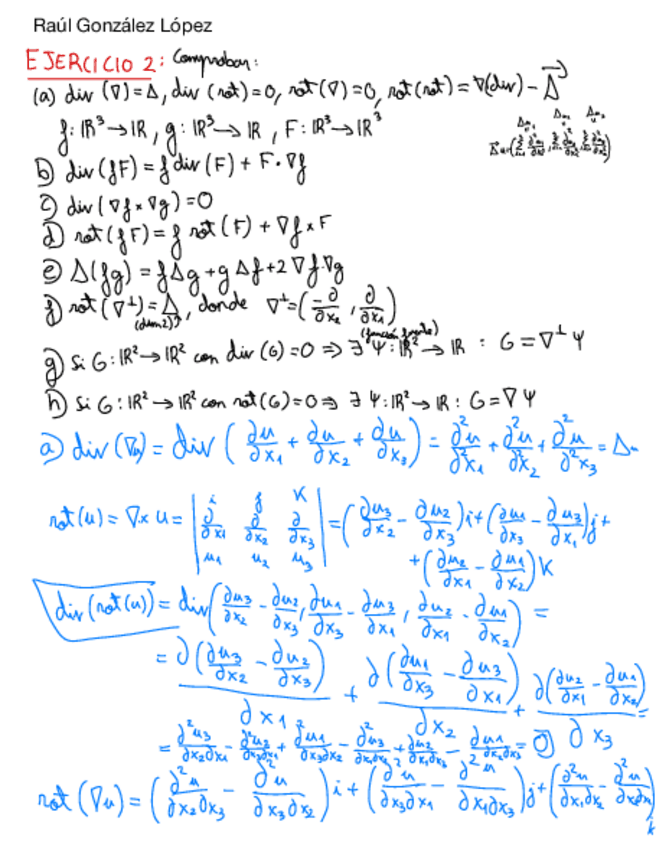 Raúl González López
EJERCICIO 2: Comprobar:
(a) div (∇) = Δ, div (rot) = 0, rot (∇) = 0, rot (rot) = ∇(div) - Δ⃗
f: ℝ³ → ℝ, g: ℝ³ → ℝ, F: ℝ³ → ℝ³
b) div (fF) = f div (F) + F · ∇f
c) div (∇f × ∇g) = 0
d) rot (fF) = f rot (F) + ∇f × F
e) Δ(fg) = fΔg + gΔf + 2∇f·∇g
f) rot (∇⊥) = Δ, donde ∇⊥ = (-∂/∂x₂, ∂/∂x₁)
(dim 2)
g) Si G: ℝ² → ℝ² con div (G) = 0 ⇒ ∃ Ψ: ℝ² → ℝ : G = ∇⊥ Ψ
h) Si G: ℝ² → ℝ² con rot (G) = 0 ⇒ ∃ Ψ: ℝ² → ℝ : G = ∇Ψ
a) div (∇u) = div (∂u/∂x₁ + ∂u/∂x₂ + ∂u/∂x₃) = ∂²u/∂²x₁ + ∂²u/∂²x₂ + ∂²u/∂²x₃ = Δu
rot (u) = ∇ × u = | i j k ; ∂/∂x₁ ∂/∂x₂ ∂/∂x₃ ; u₁ u₂ u₃ | = (∂u₃/∂x₂ - ∂u₂/∂x₃) i + (∂u₁/∂x₃ - ∂u₃/∂x₁) j +
+ (∂u₂/∂x₁ - ∂u₁/∂x₂) k
div (rot (u)) = div (∂u₃/∂x₂ - ∂u₂/∂x₃, ∂u₁/∂x₃ - ∂u₃/∂x₁, ∂u₂/∂x₁ - ∂u₁/∂x₂) =
= ∂(∂u₃/∂x₂ - ∂u₂/∂x₃)/∂x₁ + ∂(∂u₁/∂x₃ - ∂u₃/∂x₁)/∂x₂ + ∂(∂u₂/∂x₁ - ∂u₁/∂x₂)/∂x₃ =
= ∂²u₃/∂x₂∂x₁ - ∂²u₂/∂x₃∂x₁ + ∂²u₁/∂x₃∂x₂ - ∂²u₃/∂x₁∂x₂ + ∂²u₂/∂x₁∂x₃ - ∂²u₁/∂x₂∂x₃ = 0
rot (∇u) = (∂²u/∂x₂∂x₃ - ∂²u/∂x₃∂x₂) i + (∂²u/∂x₃∂x₁ - ∂²u/∂x₁∂x₃) j + (∂²u/∂x₁∂x₂ - ∂²u/∂x₂∂x₁) k